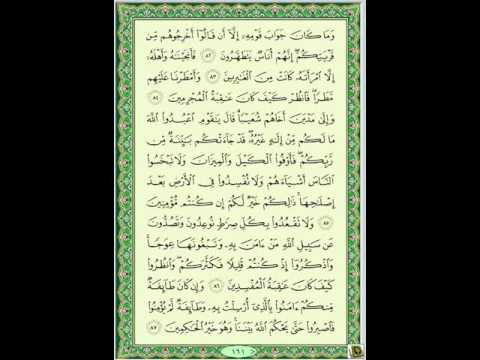 وَمَا كَانَ جَوَابَ قَوْمِهِۦٓ إِلَّآ أَن قَالُوٓا۟ أَخْرِجُوهُم مِّن
قَرْيَتِكُمْ ۖ إِنَّهُمْ أُنَاسٌ يَتَطَهَّرُونَ ٨٢ فَأَنجَيْنَـٰهُ وَأَهْلَهُۥٓ
إِلَّا ٱمْرَأَتَهُۥ كَانَتْ مِنَ ٱلْغَـٰبِرِينَ ٨٣ وَأَمْطَرْنَا عَلَيْهِم
مَّطَرًا ۖ فَٱنظُرْ كَيْفَ كَانَ عَـٰقِبَةُ ٱلْمُجْرِمِينَ ٨٤
وَإِلَىٰ مَدْيَنَ أَخَاهُمْ شُعَيْبًا ۗ قَالَ يَـٰقَوْمِ ٱعْبُدُوا۟ ٱللَّهَ
مَا لَكُم مِّنْ إِلَـٰهٍ غَيْرُهُۥ ۖ قَدْ جَآءَتْكُم بَيِّنَةٌ مِّن
رَّبِّكُمْ ۖ فَأَوْفُوا۟ ٱلْكَيْلَ وَٱلْمِيزَانَ وَلَا تَبْخَسُوا۟
ٱلنَّاسَ أَشْيَآءَهُمْ وَلَا تُفْسِدُوا۟ فِى ٱلْأَرْضِ بَعْدَ
إِصْلَـٰحِهَا ۚ ذَٰلِكُمْ خَيْرٌ لَّكُمْ إِن كُنتُم مُّؤْمِنِينَ
٨٥ وَلَا تَقْعُدُوا۟ بِكُلِّ صِرَٰطٍ تُوعِدُونَ وَتَصُدُّونَ
عَن سَبِيلِ ٱللَّهِ مَنْ ءَامَنَ بِهِۦ وَتَبْغُونَهَا عِوَجًا ۚ
وَٱذْكُرُوٓا۟ إِذْ كُنتُمْ قَلِيلًا فَكَثَّرَكُمْ ۖ وَٱنظُرُوا۟
كَيْفَ كَانَ عَـٰقِبَةُ ٱلْمُفْسِدِينَ ٨٦ وَإِن كَانَ طَآئِفَةٌ
مِّنكُمْ ءَامَنُوا۟ بِٱلَّذِىٓ أُرْسِلْتُ بِهِۦ وَطَآئِفَةٌ لَّمْ يُؤْمِنُوا۟
فَٱصْبِرُوا۟ حَتَّىٰ يَحْكُمَ ٱللَّهُ بَيْنَنَا ۚ وَهُوَ خَيْرُ ٱلْحَـٰكِمِينَ ٨٧
١٦١